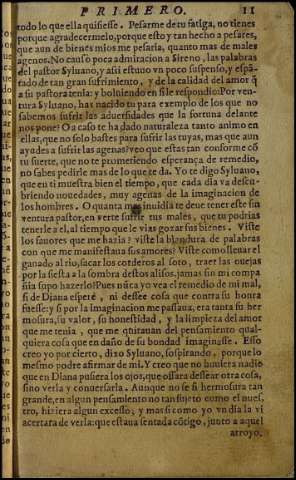 PRIMERO. 11
todo lo que ella quisiesse. Pesarme de tu fatiga, no tienes
porque agradecermelo, porque esto y tan hecho a pesares,
que aun de bienes mios me pesaria, quanto mas de males
agenos. No causò poca admiracion a Sireno, las palabras
del pastor Syluano, y assi estuuo vn poco suspenso, y espã
tado de tan gran sufrimiento, y de la calidad del amor q̃
a su pastora tenia: y boluiendo en si le respondio: Por ven
tura Syluano, has nacido tu para exemplo de los que no
sabemos sufrir las aduersidades que la fortuna delante
nos pone? O a caso te ha dado naturaleza tanto animo en
ellas, que no solo bastes para sufrir las tuyas, mas que aun
ayudes a sufrir las agenas? veo que estas tan conforme cõ
tu suerte, que no te prometiendo esperança de remedio,
no sabes pedirle mas de lo que te da. Yo te digo Syluano,
que en ti muestra bien el tiempo, que cada dia va descu-
briendo nouedades, muy agenas de la imaginacion de
los hombres. O quanta mas inuidia te deue tener este sin
ventura pastor, en verte sufrir tus males, que tu podrias
tenerle a el, al tiempo que le vias gozar sus bienes. Viste
los fauores que me hazia? viste la blandura de palabras
con que me manifestaua sus amores? Viste como lleuar el
ganado al rio, sacar los corderos al soto, traer las ouejas
por la siesta a la sombra destos alisos, jamas sin mi compa
ñia supo hazerlo? Pues nũca yo vea el remedio de mi mal,
si de Diana esperè, ni dessee cosa que contra su honra
fuesse: y si por la imaginacion me passaua, era tanta su her
mosura, su valor, su honestidad, y la limpieza del amor
que me tenia, que me quitauan del pensamiento qual-
quiera cosa que en daño de su bondad imaginasse. Esso
creo yo por cierto, dixo Syluano, sospirando, porque lo
mesmo podre afirmar de mi. Y creo que no huuiera nadie
que en Diana pusiera los ojos, que ossara dessear otra cosa,
sino verla y conuersarla. Aunque no se si hermosura tan
grande, en algun pensamiento no tan sujeto como el nues,
tro, hiziera algun excesso; y mas si como yo vn dia la vi
acertara de verla: que estaua sentada cõtigo, junto a aquel
arroyo,